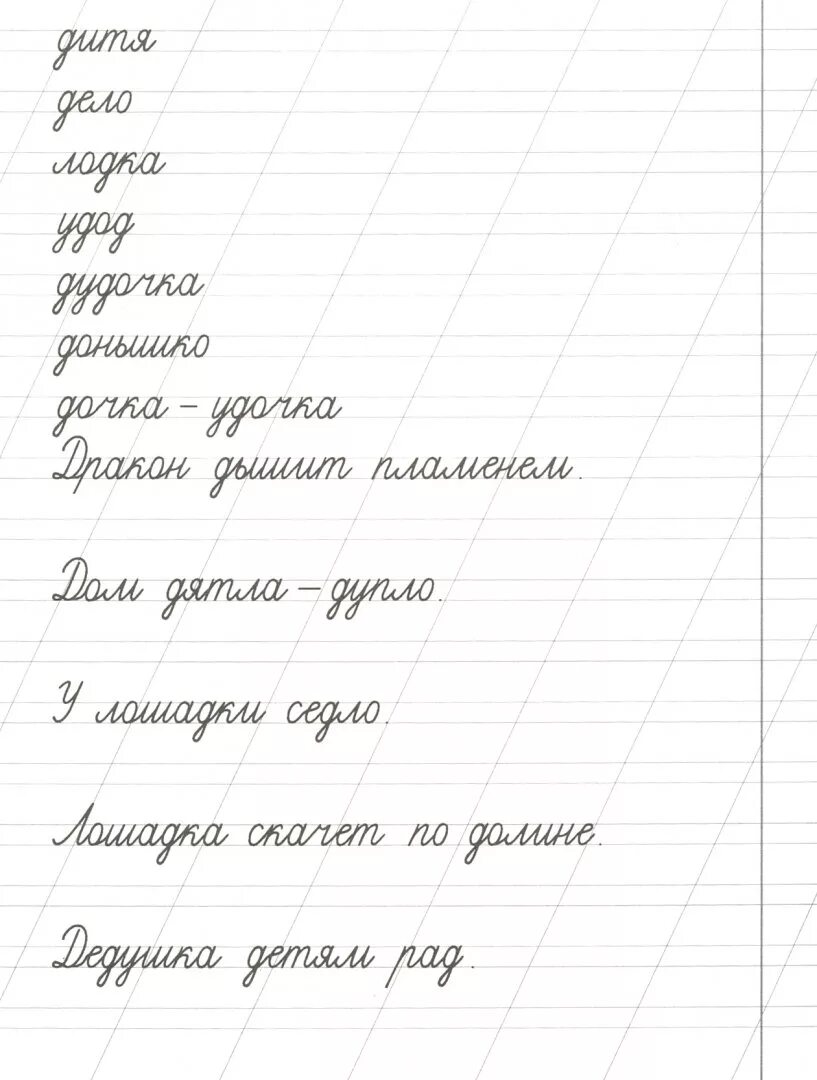 дитя
дело
лодка
удод
дудочка
донышко
дочка – удочка
Дракон дышит пламенем.
Дом дятла – дупло.
У лошадки седло.
Лошадка скачет по долине.
Дедушка детям рад.